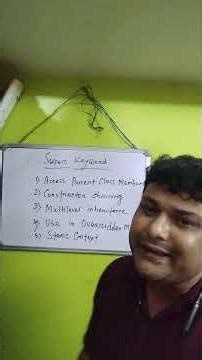 Super Keyword
1) Access Parent Class Member
2) Constructor chaining
3) Multilevel inheritance
4) Use in Overridden M
5) Static Context